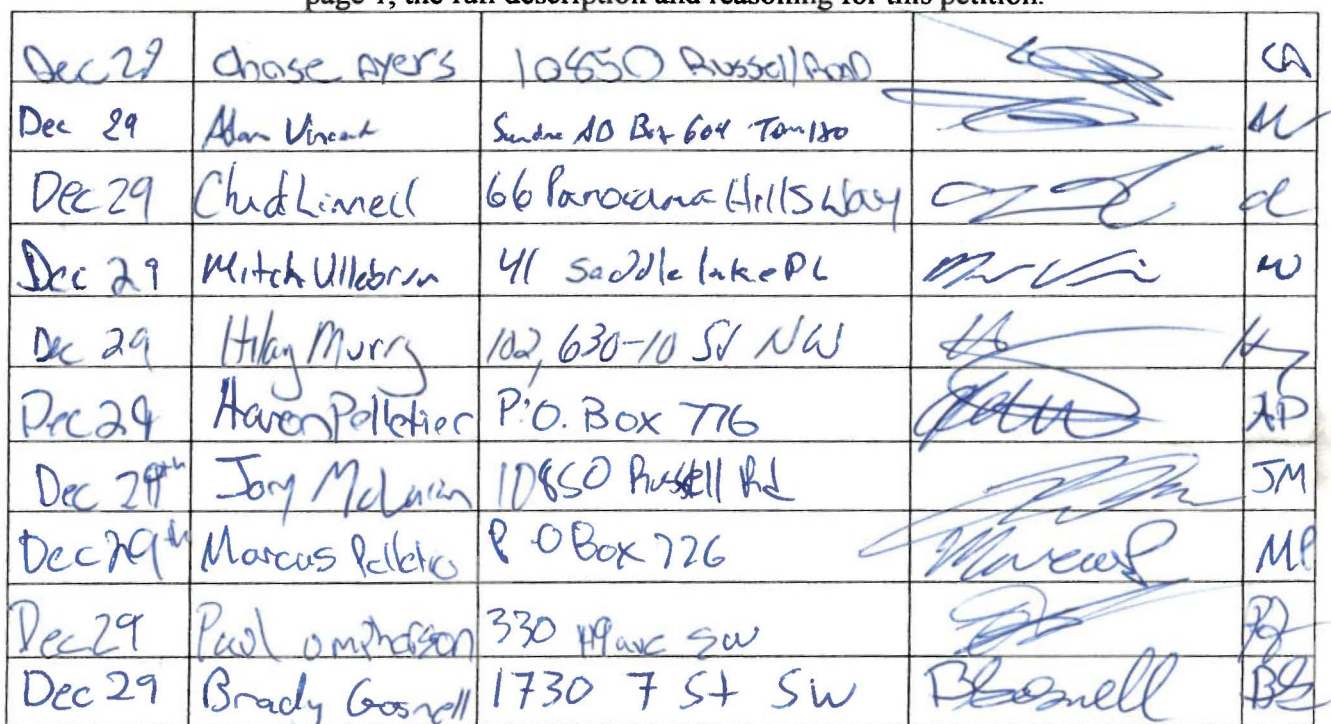 page 1, the full description and reasoning for this petition.
Dec 29 Chase Ayers 10850 Russell Road CA
Dec 29 Adam Vincent Sundre AB Box 604 Tom1X0
Dec 29 Chad Linnell 66 Panorama Hills Way CL
Dec 29 Mitch 41 Saddle lake PL
Dec 29 Hilay Murry 102, 630-10 St NW
Dec 29 Haven Pelletier P.O. Box 776
Dec 29th Jory 10850 Russell Rd JM
Dec 29th Marcus Pelletier P O Box 726 Marcus P MP
Dec 29 Paul 330 ave SW
Dec 29 Brady Gosnell 1730 7 St SW BGosnell BG